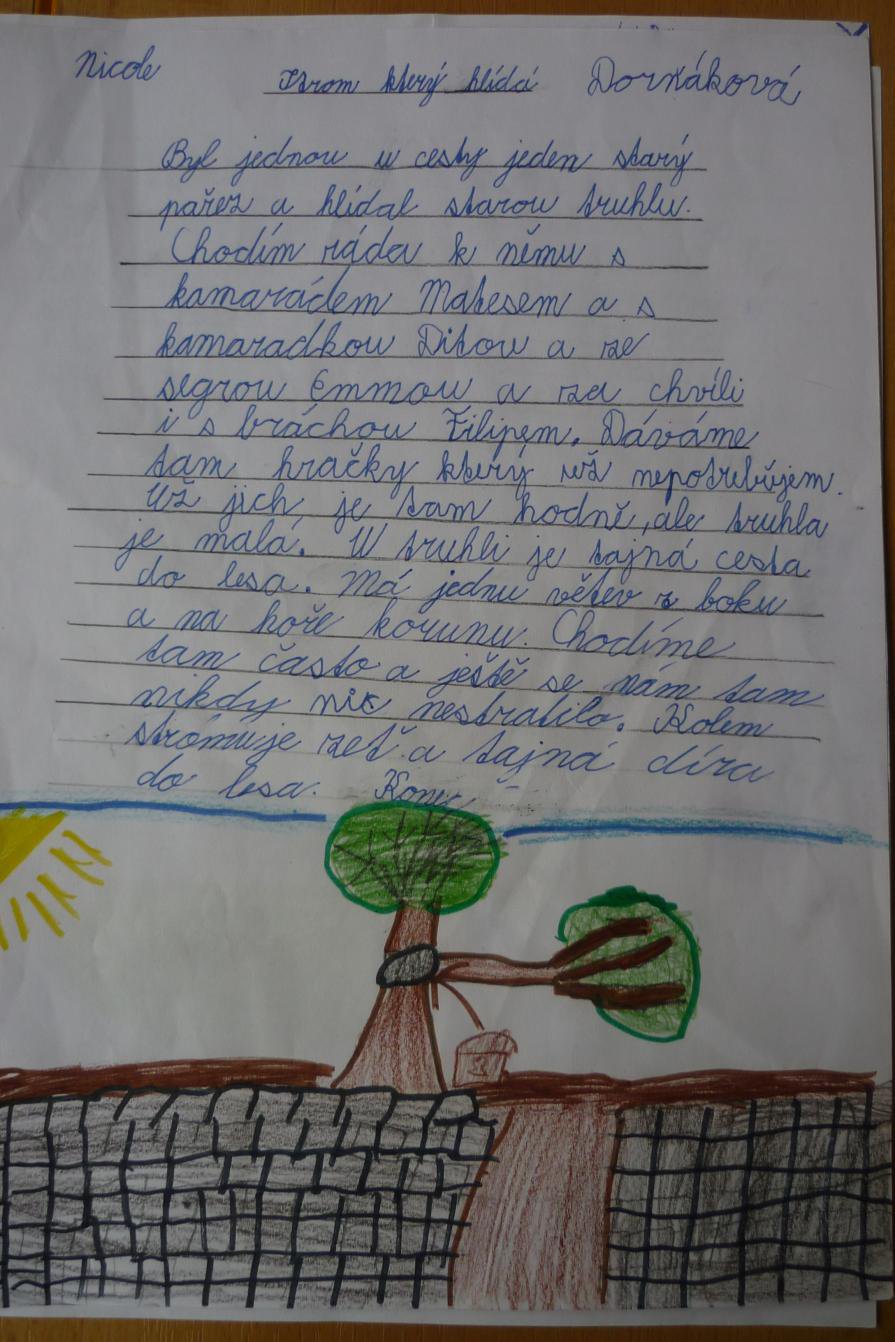 Nicole Strom který hlídá Dorňáková
Byl jednou u cesty jeden starý
pařez a hlídal starou truhlu.
Chodím ráda k němu s
kamarádem Matesem a s
kamaradkou Ditou a ze
segrou Emmou a za chvíli
i s bráchou Filipem. Dáváme
tam hračky který už nepotřebůjem.
Už jich je tam hodně, ale truhla
je malá. W truhli je tajná cesta
do lesa. Má jednu větev z boku
a na hoře korunu. Chodíme
tam často a ještě se nám tam
nikdy nic nestratilo. Kolem
strómuje zeď a tajná díra
do lesa. Konec